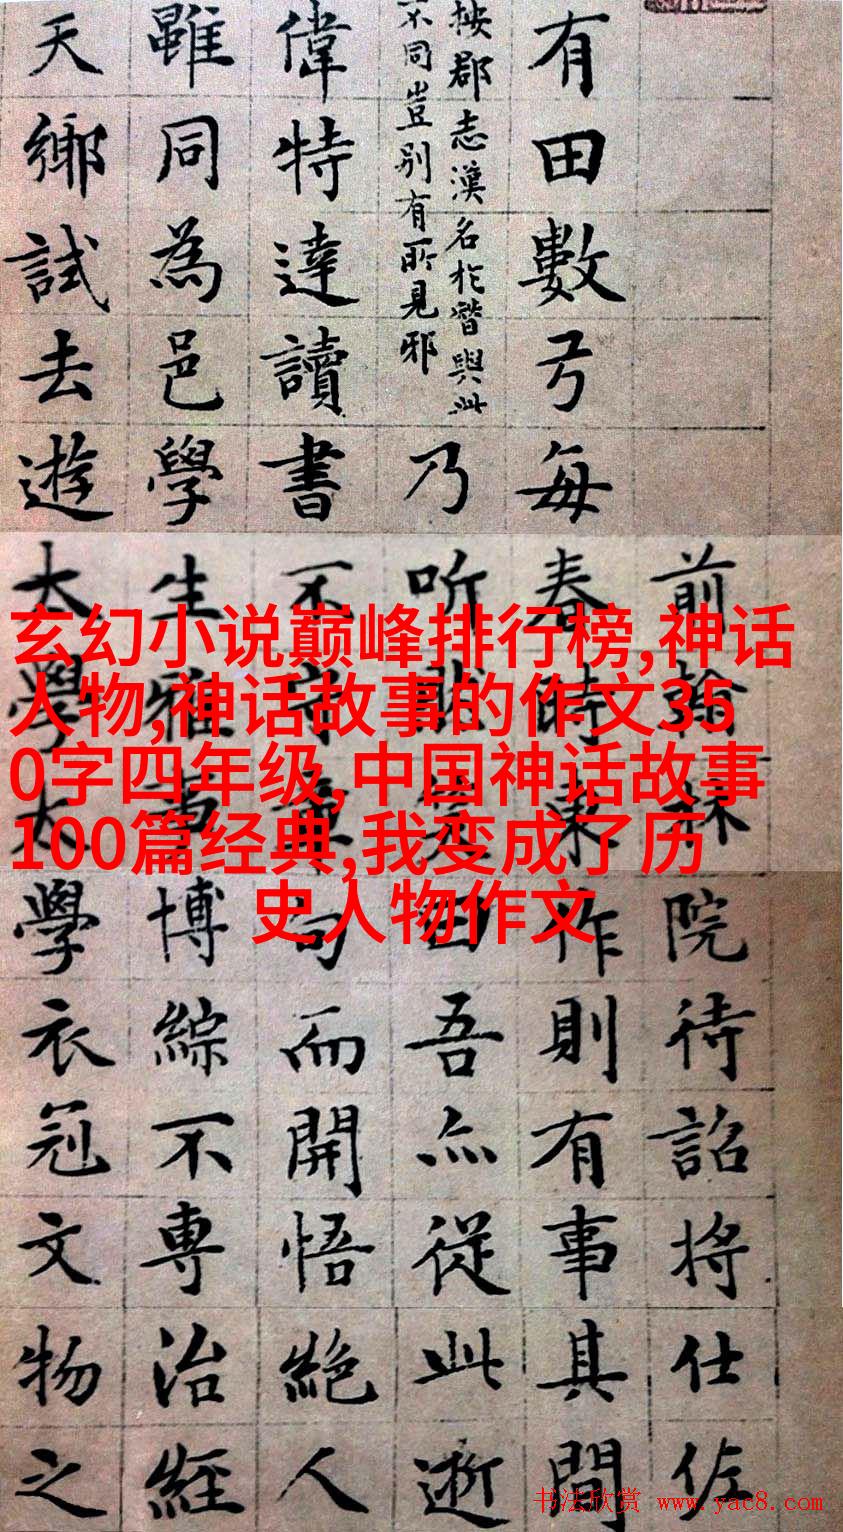 前翰林院待詔將仕佐
有田數弓每春時東作則有事其間
按郡志漢名於朁與此
不同豈别有所見邪
乃听然曰吾亦從此逝
偉特達讀書不守章句而開悟絶人
雖同為邑學生雅博綜不專治經
天鄉試去遊太學太學衣冠文物之
玄幻小说巅峰排行榜,神话
人物,神话故事的作文35
0字四年级,中国神话故事
100篇经典,我变成了历
史人物作文
书法欣赏 www.yac8.com